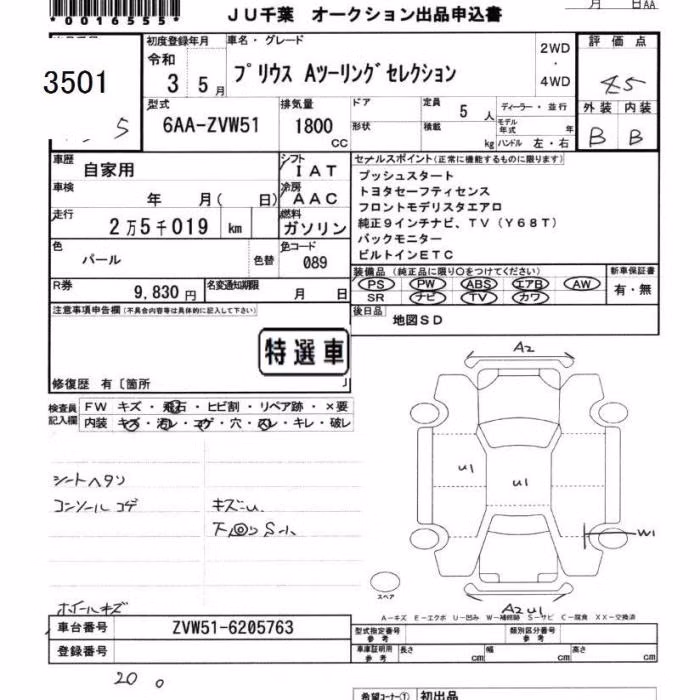 *0016555*
JU千葉 オークション出品申込書
月 日AA
3501
5
初度登録年月
令和
3 5月
車名・グレード
プリウス Aツーリングセレクション
2WD
・
4WD
評価点
4.5
外装 内装
B B
型式
6AA-ZVW51
排気量
1800
CC
ドア
形状
定員 5 人
積載 kg
ディーラー・並行
モデル年式 年
ハンドル 左・右
車歴 自家用
シフト IAT
車検 年 月( 日)
冷房 AAC
走行 2万5千019 km
燃料 ガソリン
色 パール 色替
色コード 089
R券 9,830円
名変通知期限 月 日
セールスポイント(正常に機能するものに限ります)
プッシュスタート
トヨタセーフティセンス
フロントモデリスタエアロ
純正9インチナビ、TV(Y68T)
バックモニター
ビルトインETC
装備品(純正品に限り○をつけてください)
PS PW ABS エアB AW
SR ナビ TV カワ
新車保証書
有・無
後日品 地図SD
注意事項申告欄(不具合内容等は具体的に記入して下さい)
特選車
修復歴 有〔箇所 〕
検査員記入欄
FW キズ・飛石・ヒビ割・リペア跡・×要
内装 キズ・汚レ・コゲ・穴・スレ・キレ・破レ
シートヘタリ
コンソールコゲ
キズ・U.
下回りS小
ホイールキズ
A2
U1
U1
W1
A2 U1
スペア
A-キズ E-エクボ U-凹み W-補修跡 S-サビ C-腐食 XX-交換済
車台番号 ZVW51-6205763
登録番号
型式指定番号 参考
類別区分番号 参考
車庫証明用 参考 長さ cm 幅 cm 高さ cm
20 。
希望コーナー① 初出品